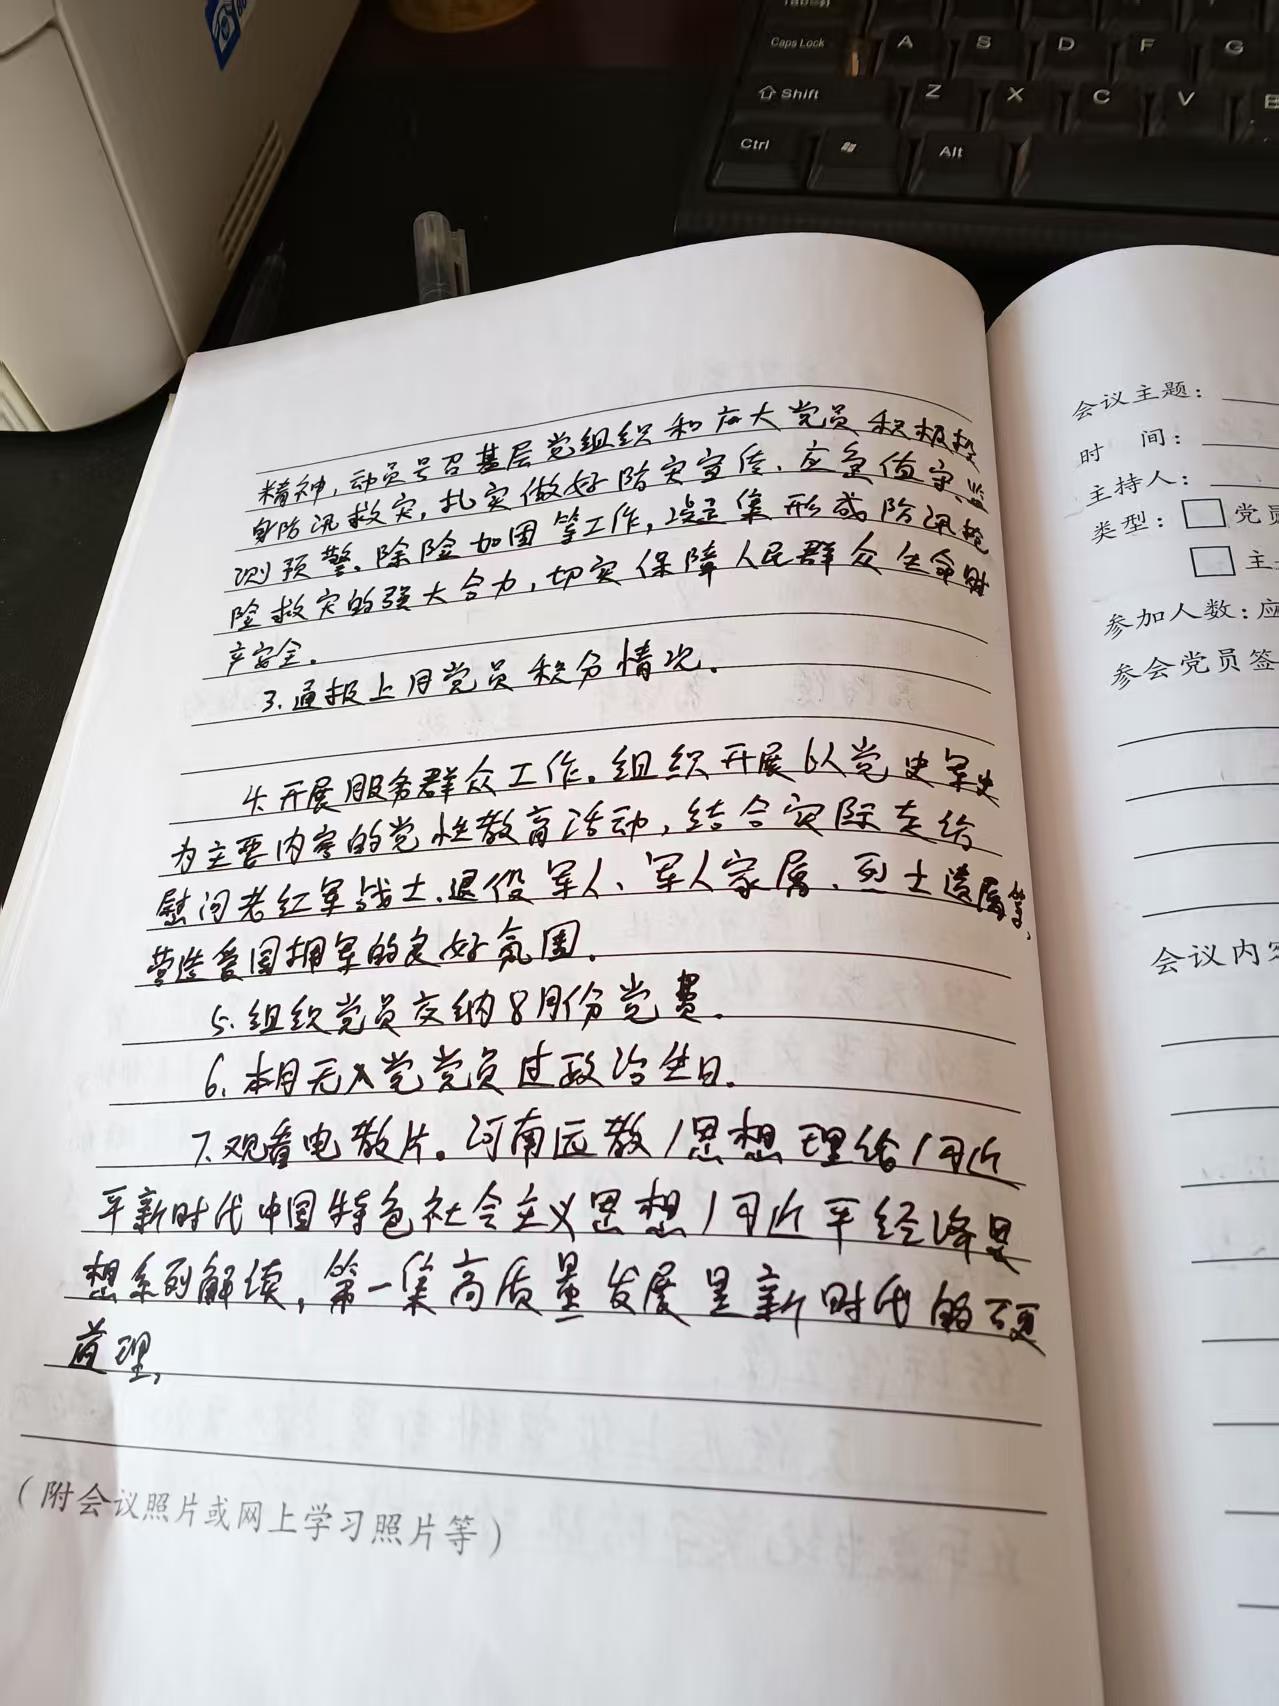 Caps Lock A S D F G
Shift Z X C V
Ctrl Alt
精神,动员号召基层党组织和广大党员积极投
身防汛救灾,扎实做好防灾宣传、应急值守、监
测预警、除险加固等工作,凝集形成防汛抢
险救灾的强大合力,切实保障人民群众生命财
产安全。
3.通报上月党员积分情况。
4.开展服务群众工作。组织开展以党史军史
为主要内容的党性教育活动,结合实际走给
慰问老红军战士、退役军人、军人家属、烈士遗属等,
营造爱国拥军的良好氛围。
5.组织党员交纳8月份党费。
6.本月无入党党员过政治生日。
7.观看电教片。河南远教/思想理论/习近
平新时代中国特色社会主义思想/习近平经济思
想系列解读,第一集高质量发展是新时代的硬
道理,
(附会议照片或网上学习照片等)
会议主题:
时 间:
主持人:
类型:□党员
□主
参加人数:应
参会党员签
会议内容